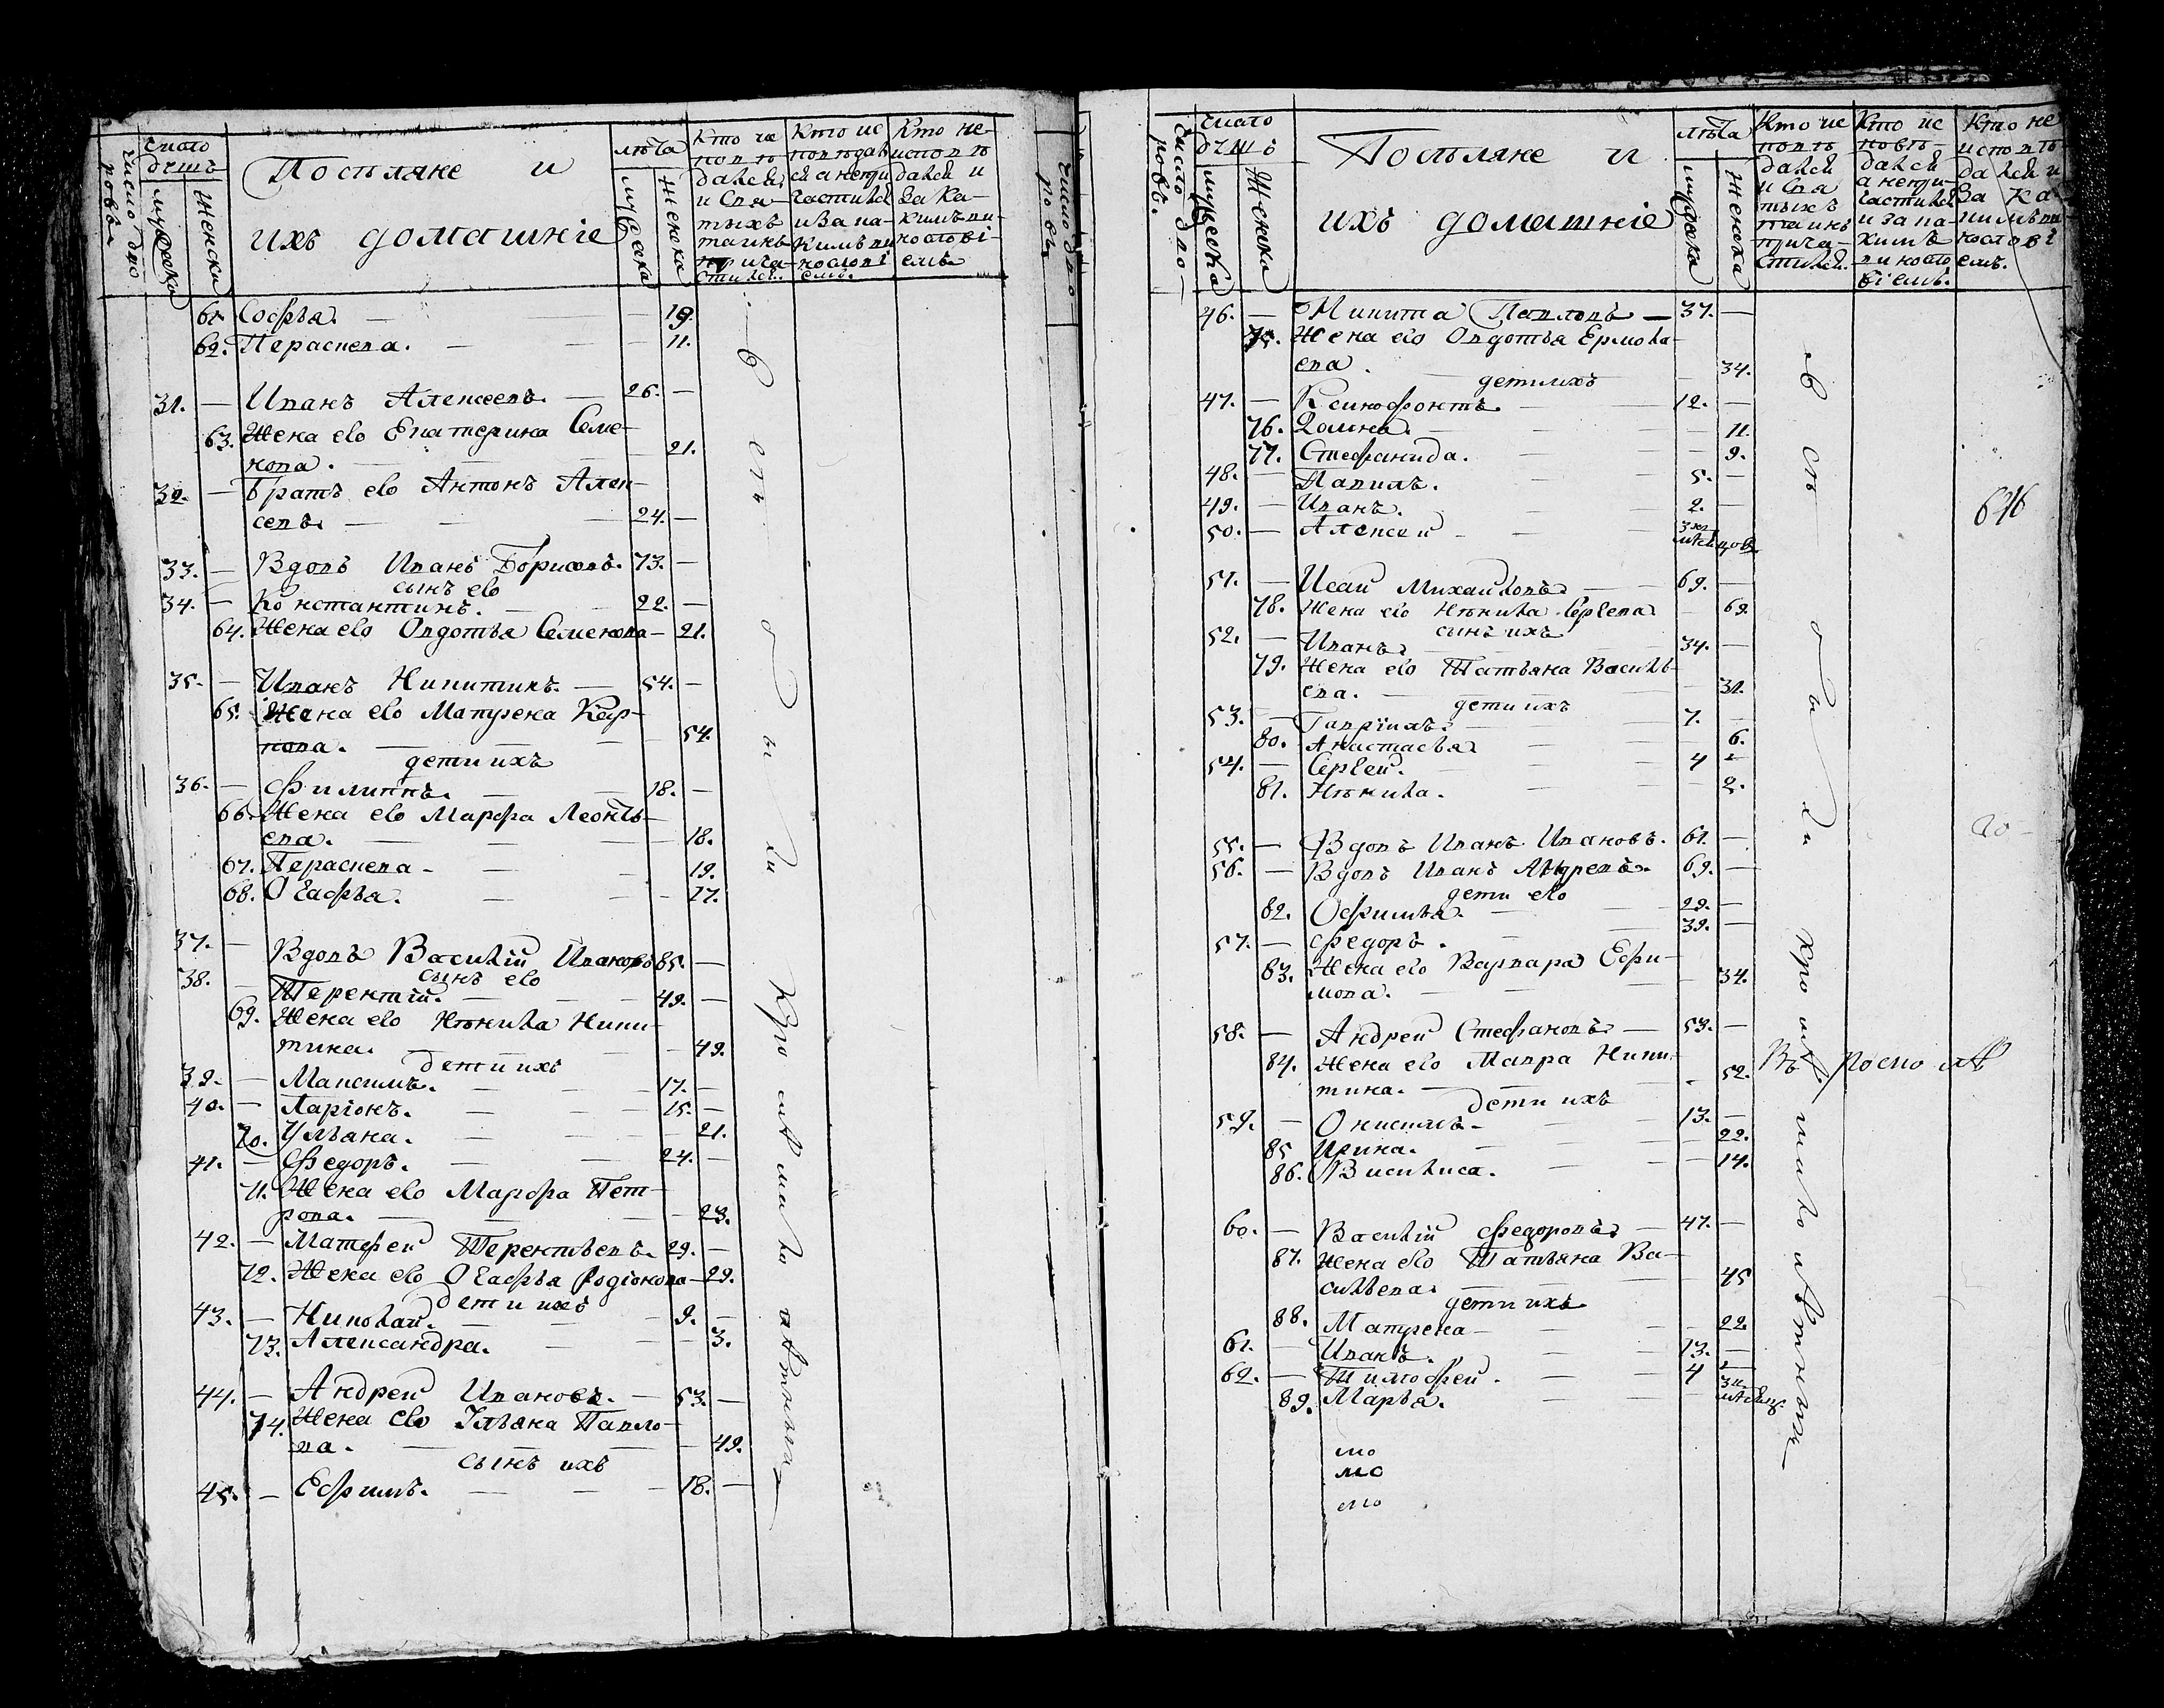 Число дво
ровъ
Число
душъ
мужеска
женска
Поселяне и
ихъ домашніе
лѣта
мужеска
женска
Кто ис
повѣ
дался
и Свя
тыхъ
таинъ
прича
стился.
Кто ис
повѣдал
ся а непри
частился
и за ка
кимъ ви
нословi
емъ.
Кто не
исповѣ
дался и
за ка
кимъ ви
нословi
емъ
61 Софья. — 19.
62. Параскева. — 11.
31. — Иванъ Алексеевъ. — 26. —
63. Жена ево Екатерина Семе-
нова. — 21.
32. — Братъ ево Антонъ Алек-
сеевъ. — 24. —
33. — Вдовъ Иванъ Борисовъ. 73. —
сынъ ево
34. — Константинъ. — 22. —
64. Жена ево Овдотья Семенова — 21.
35. — Иванъ Никитинъ. — 54. —
65. Жена ево Матрена Кар-
пова. — 54.
дети ихъ
36. — Филиппъ. — 18. —
66. Жена ево Марфа Леонть-
ева. — 18.
67. Параскева — 19.
68. Огафья. — 17.
37. — Вдовъ Василій Ивановъ 85. —
сынъ ево
38. — Терентій. — 49. —
69. Жена ево Ненила Ники-
тина. — 49.
дети ихъ
39. — Максимъ. — 17. —
40. — Ларіонъ. — 15. —
70. Ульяна. — 21.
41. — Федоръ. — 24. —
71. Жена ево Марфа Пет-
рова. — 23.
42. — Матфей Терентьевъ. 29. —
72. Жена ево Огафья Родіонова — 29.
дети ихъ
43. — Николай. — 9. —
73. Александра. — 3.
44. — Андрей Ивановъ. — 53. —
74. Жена ево Ульяна Павло-
ва. — 49.
сынъ ихъ
45. — Ефимъ. — 18. —
Число дво
ровъ
Число дво
ровъ.
Число
душъ
мужеска
женска
Поселяне и
ихъ домашніе
лѣта
мужеска
женска
Кто ис
повѣ
дался
и Свя
тыхъ
таинъ
прича
стился.
Кто ис
повѣ
дался
а непри
частился
и за ка
кимъ
виносло
віемъ.
Кто не
исповѣ
дался и
за ка
кимъ ви
нословi
емъ.
46. — Никита Павловъ — 37. —
75. Жена ево Овдотья Ермола-
ева. — 34.
дети ихъ
47. — Ксинофонтъ. — 12. —
76. Домна. — 11.
77. Стефанида. — 9.
48. — Павилъ. — 5. —
49. — Иванъ. — 2. —
50. — Алексей —
646
51. — Исай Михайловъ — 69. —
78. Жена ево Ненила Сергева — 69.
сынъ ихъ
52. — Иванъ. — 34. —
79. Жена ево Татьяна Василь-
ева. — 31.
дети ихъ
53. — Гавріилъ. — 7. —
80. Анастасья — 6.
54. — Сергей. — 4 —
81. Ненила. — 2.
55. — Вдовъ Иванъ Ивановъ. 61. —
56. — Вдовъ Иванъ Андревъ. 69. —
дети ево
82. Офимья. — 29. —
57. — Федоръ. — 39. —
83. Жена ево Варвара Ефи-
мова. — 34.
58. — Андрей Стефановъ — 53. —
84. Жена ево Мавра Ники-
тина. — 52.
дети ихъ
59. — Онисимъ — 13. —
85 Ирина. — 22.
86. Василиса. — 14.
60. — Василій Федоровъ — 47. —
87. Жена ево Татьяна Ва-
сильева. — 45
дети ихъ
88. Матрена — 22.
61. — Иванъ. — 13. —
62. — Тимофей. — 4 —
89. Марья. —